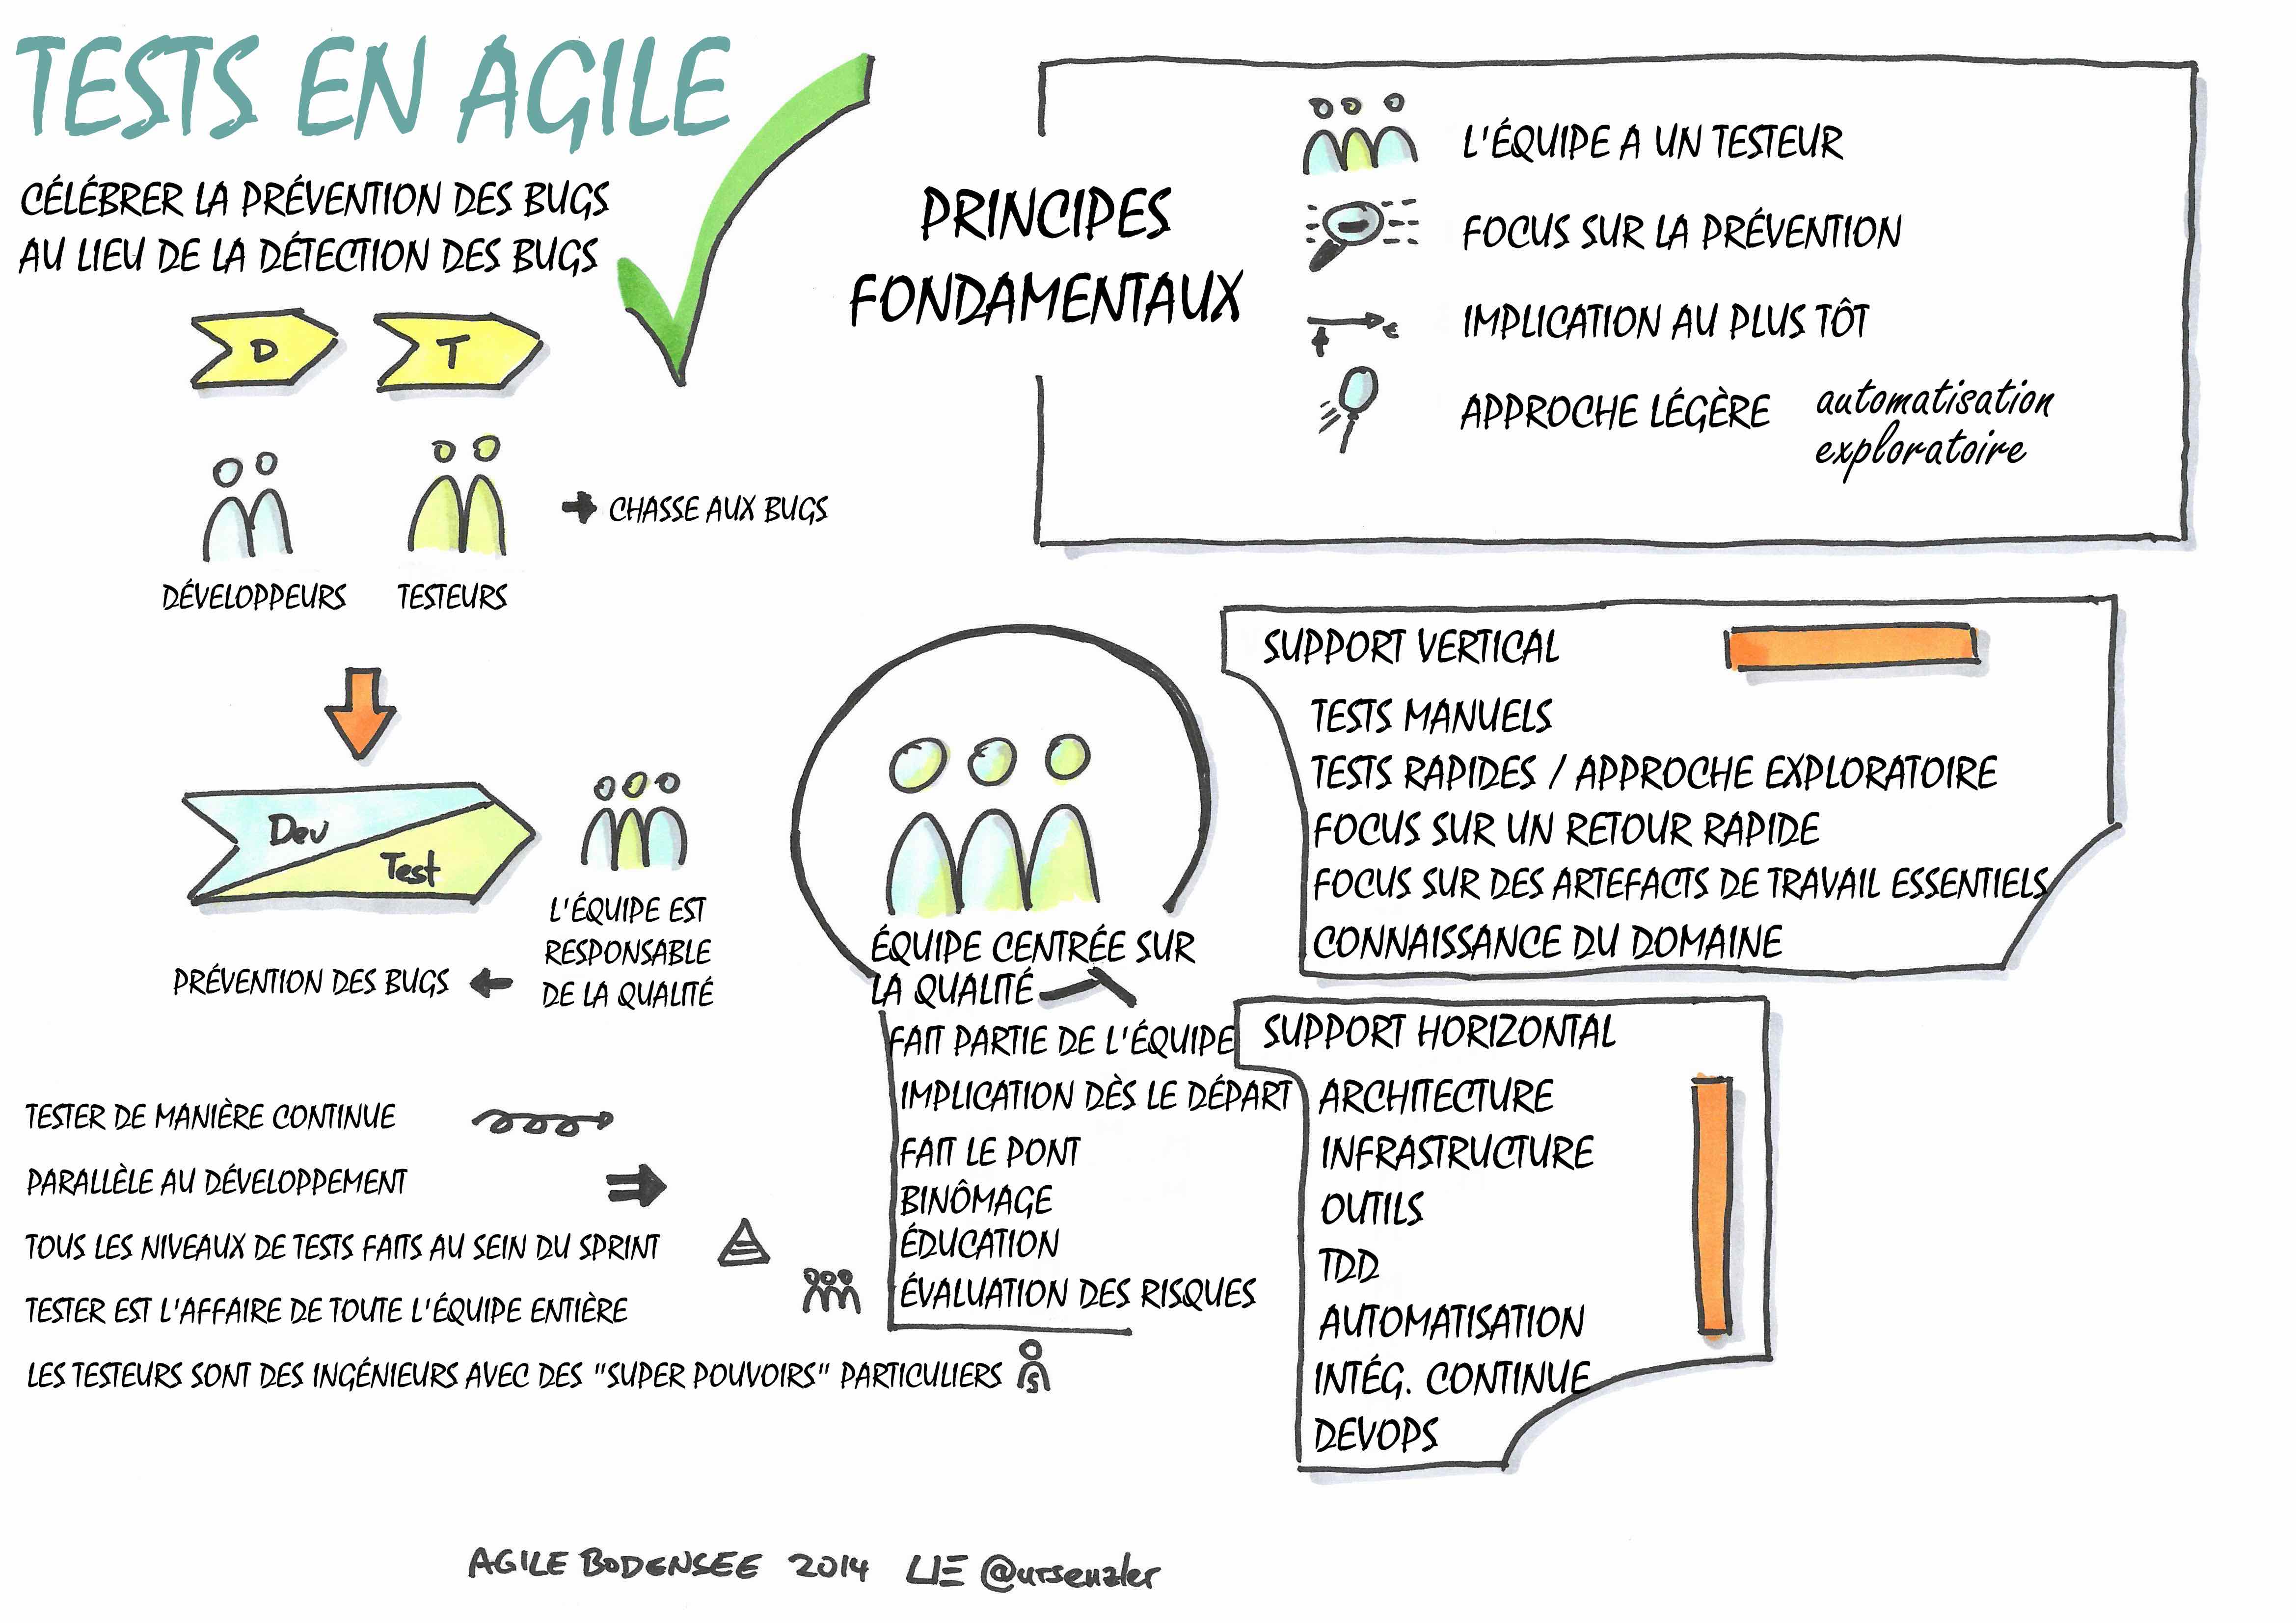 TESTS EN AGILE
CÉLÉBRER LA PRÉVENTION DES BUGS
AU LIEU DE LA DÉTECTION DES BUGS
D
T
CHASSE AUX BUGS
DÉVELOPPEURS
TESTEURS
Dev
Test
L'ÉQUIPE EST
RESPONSABLE
DE LA QUALITÉ
PRÉVENTION DES BUGS
TESTER DE MANIÈRE CONTINUE
PARALLÈLE AU DÉVELOPPEMENT
TOUS LES NIVEAUX DE TESTS FAITS AU SEIN DU SPRINT
TESTER EST L'AFFAIRE DE TOUTE L'ÉQUIPE ENTIÈRE
LES TESTEURS SONT DES INGÉNIEURS AVEC DES "SUPER POUVOIRS" PARTICULIERS
S
PRINCIPES
FONDAMENTAUX
L'ÉQUIPE A UN TESTEUR
FOCUS SUR LA PRÉVENTION
t
IMPLICATION AU PLUS TÔT
APPROCHE LÉGÈRE
automatisation
exploratoire
ÉQUIPE CENTRÉE SUR
LA QUALITÉ
FAIT PARTIE DE L'ÉQUIPE
IMPLICATION DÈS LE DÉPART
FAIT LE PONT
BINÔMAGE
ÉDUCATION
ÉVALUATION DES RISQUES
SUPPORT VERTICAL
TESTS MANUELS
TESTS RAPIDES / APPROCHE EXPLORATOIRE
FOCUS SUR UN RETOUR RAPIDE
FOCUS SUR DES ARTEFACTS DE TRAVAIL ESSENTIELS
CONNAISSANCE DU DOMAINE
SUPPORT HORIZONTAL
ARCHITECTURE
INFRASTRUCTURE
OUTILS
TDD
AUTOMATISATION
INTÉG. CONTINUE
DEVOPS
AGILE BODENSEE 2014 @ursenzler